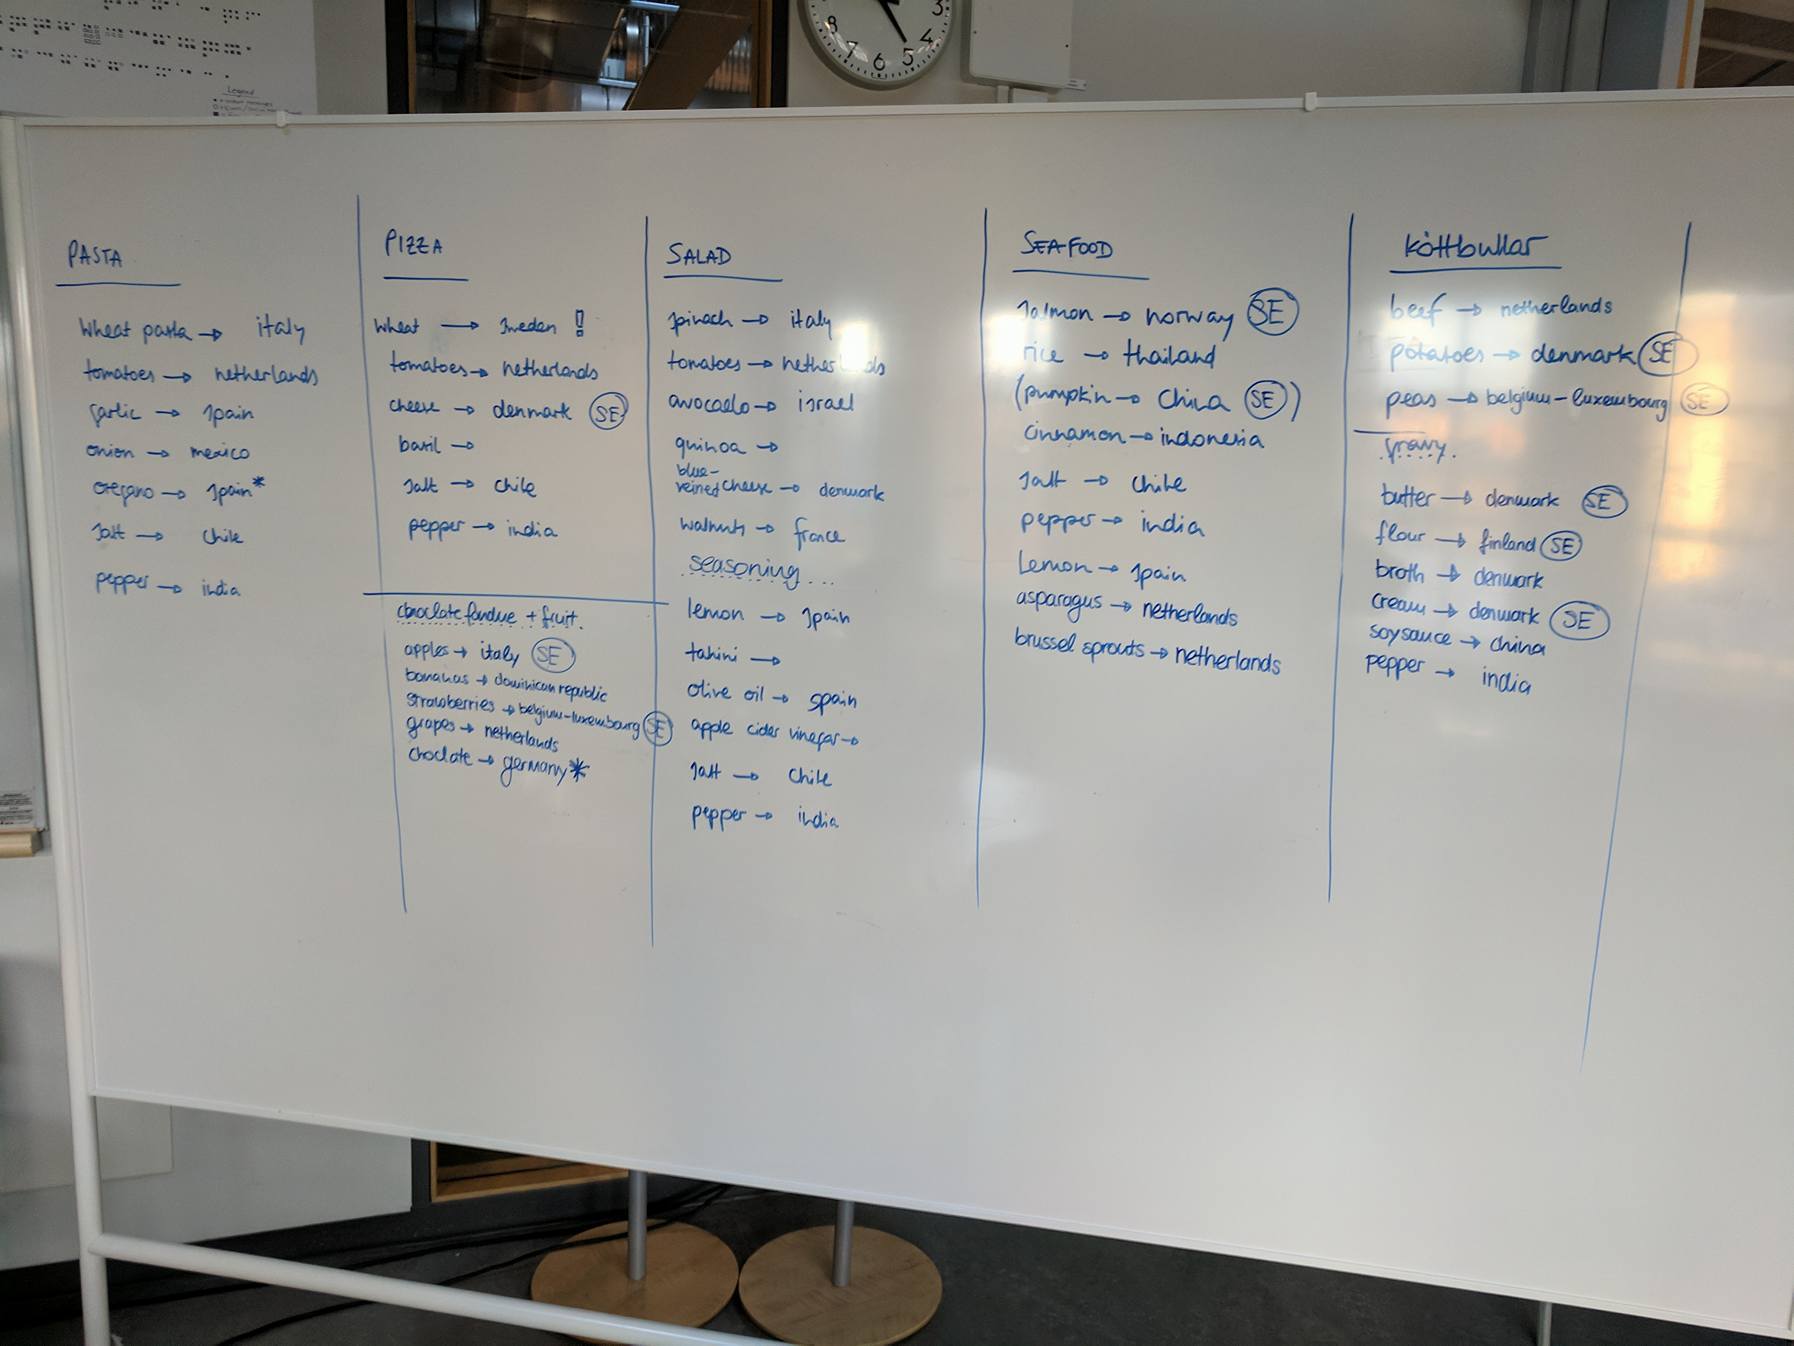 8
7
6
5
4
3
Legend
PASTA
wheat pasta → italy
tomatoes → netherlands
garlic → spain
onion → mexico
oregano → spain*
salt → chile
pepper → india
PIZZA
wheat → sweden !
tomatoes → netherlands
cheese → denmark SE
basil →
salt → chile
pepper → india
choclate fondue + fruit.
apples → italy SE
bananas → dominican republic
strawberries → belgium-luxembourg SE
grapes → netherlands
choclate → germany*
SALAD
spinach → italy
tomatoes → netherlands
avocado → israel
quinoa →
blue-
veined cheese → denmark
walnuts → france
seasoning...
lemon → spain
tahini →
olive oil → spain
apple cider vinegar →
salt → chile
pepper → india
SEAFOOD
salmon → norway SE
rice → thailand
(pumpkin → china SE)
cinnamon → indonesia
salt → chile
pepper → india
lemon → spain
asparagus → netherlands
brussel sprouts → netherlands
köttbullar
beef → netherlands
potatoes → denmark SE
peas → belgium-luxembourg SE
gravy.
butter → denmark SE
flour → finland SE
broth → denmark
cream → denmark SE
soysauce → china
pepper → india